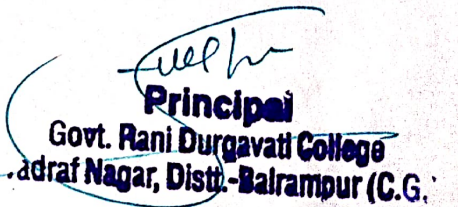 Principal
Govt. Rani Durgavati College
.adraf Nagar, Distt.-Balrampur (C.G.